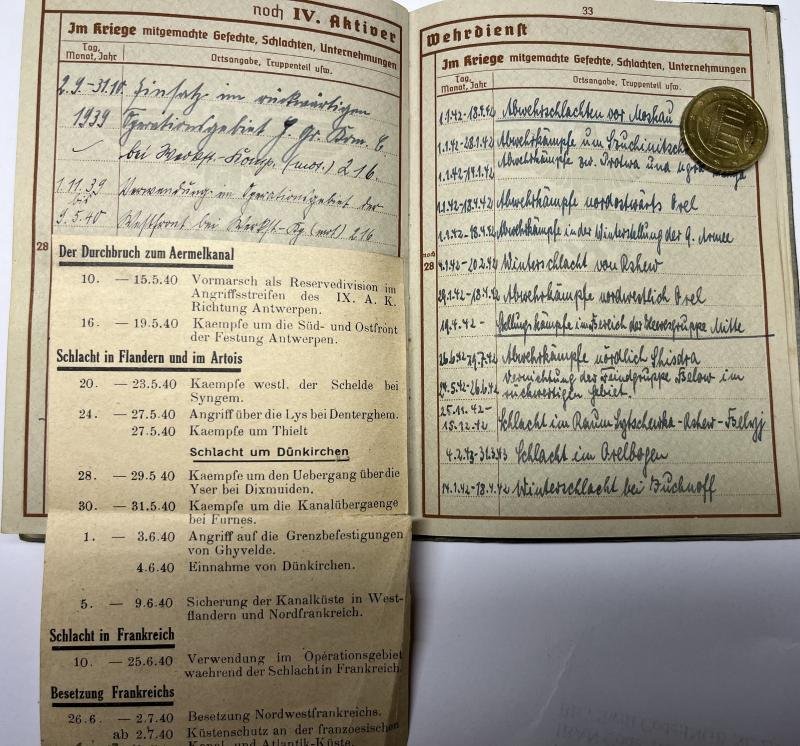 noch IV. Aktiver
Im Kriege mitgemachte Gefechte, Schlachten, Unternehmungen
Tag, Monat, Jahr
Ortsangabe, Truppenteil usw.
2.9.-31.10. Einsatz im rückwärtigen
1939 Operationsgebiet H. Gr. Kdo. C
bei Werkst.-Komp. (mot.) 216.
1.11.39 Verwendung im Operationsgebiet der
bis
9.5.40 Westfront bei Werkst.-Kp (mot) 216
28
Der Durchbruch zum Aermelkanal
10. — 15.5.40 Vormarsch als Reservedivision im
Angriffsstreifen des IX. A. K.
Richtung Antwerpen.
16. — 19.5.40 Kaempfe um die Süd- und Ostfront
der Festung Antwerpen.
Schlacht in Flandern und im Artois
20. — 23.5.40 Kaempfe westl. der Schelde bei
Syngem.
24. — 27.5.40 Angriff über die Lys bei Denterghem.
27.5.40 Kaempfe um Thielt
Schlacht um Dünkirchen
28. — 29.5.40 Kaempfe um den Uebergang über die
Yser bei Dixmuiden.
30. — 31.5.40 Kaempfe um die Kanalübergaenge
bei Furnes.
1. — 3.6.40 Angriff auf die Grenzbefestigungen
von Ghyvelde.
4.6.40 Einnahme von Dünkirchen.
5. — 9.6.40 Sicherung der Kanalküste in West-
flandern und Nordfrankreich.
Schlacht in Frankreich
10. — 25.6.40 Verwendung im Opérationsgebiet
waehrend der Schlacht in Frankreich.
Besetzung Frankreichs
26.6. — 2.7.40 Besetzung Nordwestfrankreichs.
ab 2.7.40 Küstenschutz an der franzoesischen
Kanal- und Atlantik-Küste.
33
Wehrdienst
Im Kriege mitgemachte Gefechte, Schlachten, Unternehmungen
Tag, Monat, Jahr
Ortsangabe, Truppenteil usw.
1.1.42-18.4.42 Abwehrschlachten vor Moskau
1.1.42-28.1.42 Abwehrkämpfe um
1.1.42-14.1.42 Abwehrkämpfe zw. Protwa und
1.1.42-18.4.42 Abwehrkämpfe nordostwärts Orel
1.1.42-18.4.42 Abwehrkämpfe in der Winterstellung der 9. Armee
noch
28
4.1.42-20.2.42 Winterschlacht von Rshew
29.1.42-18.4.42 Abwehrkämpfe nordwestlich Orel
19.4.42- Stellungskämpfe im Bereich der Heeresgruppe Mitte
26.6.42-29.7.42 Abwehrkämpfe nördlich Shisdra
24.5.42-26.6.42 Vernichtung der Feindgruppe Below im
rückwertigen Gebiet.
25.11.42-
15.12.42 Schlacht im Raum Sytschewka-Rshew-Belyj
4.2.43-31.3.43 Schlacht im Orelbogen
14.1.42-18.4.42 Winterschlacht bei Juchnoff